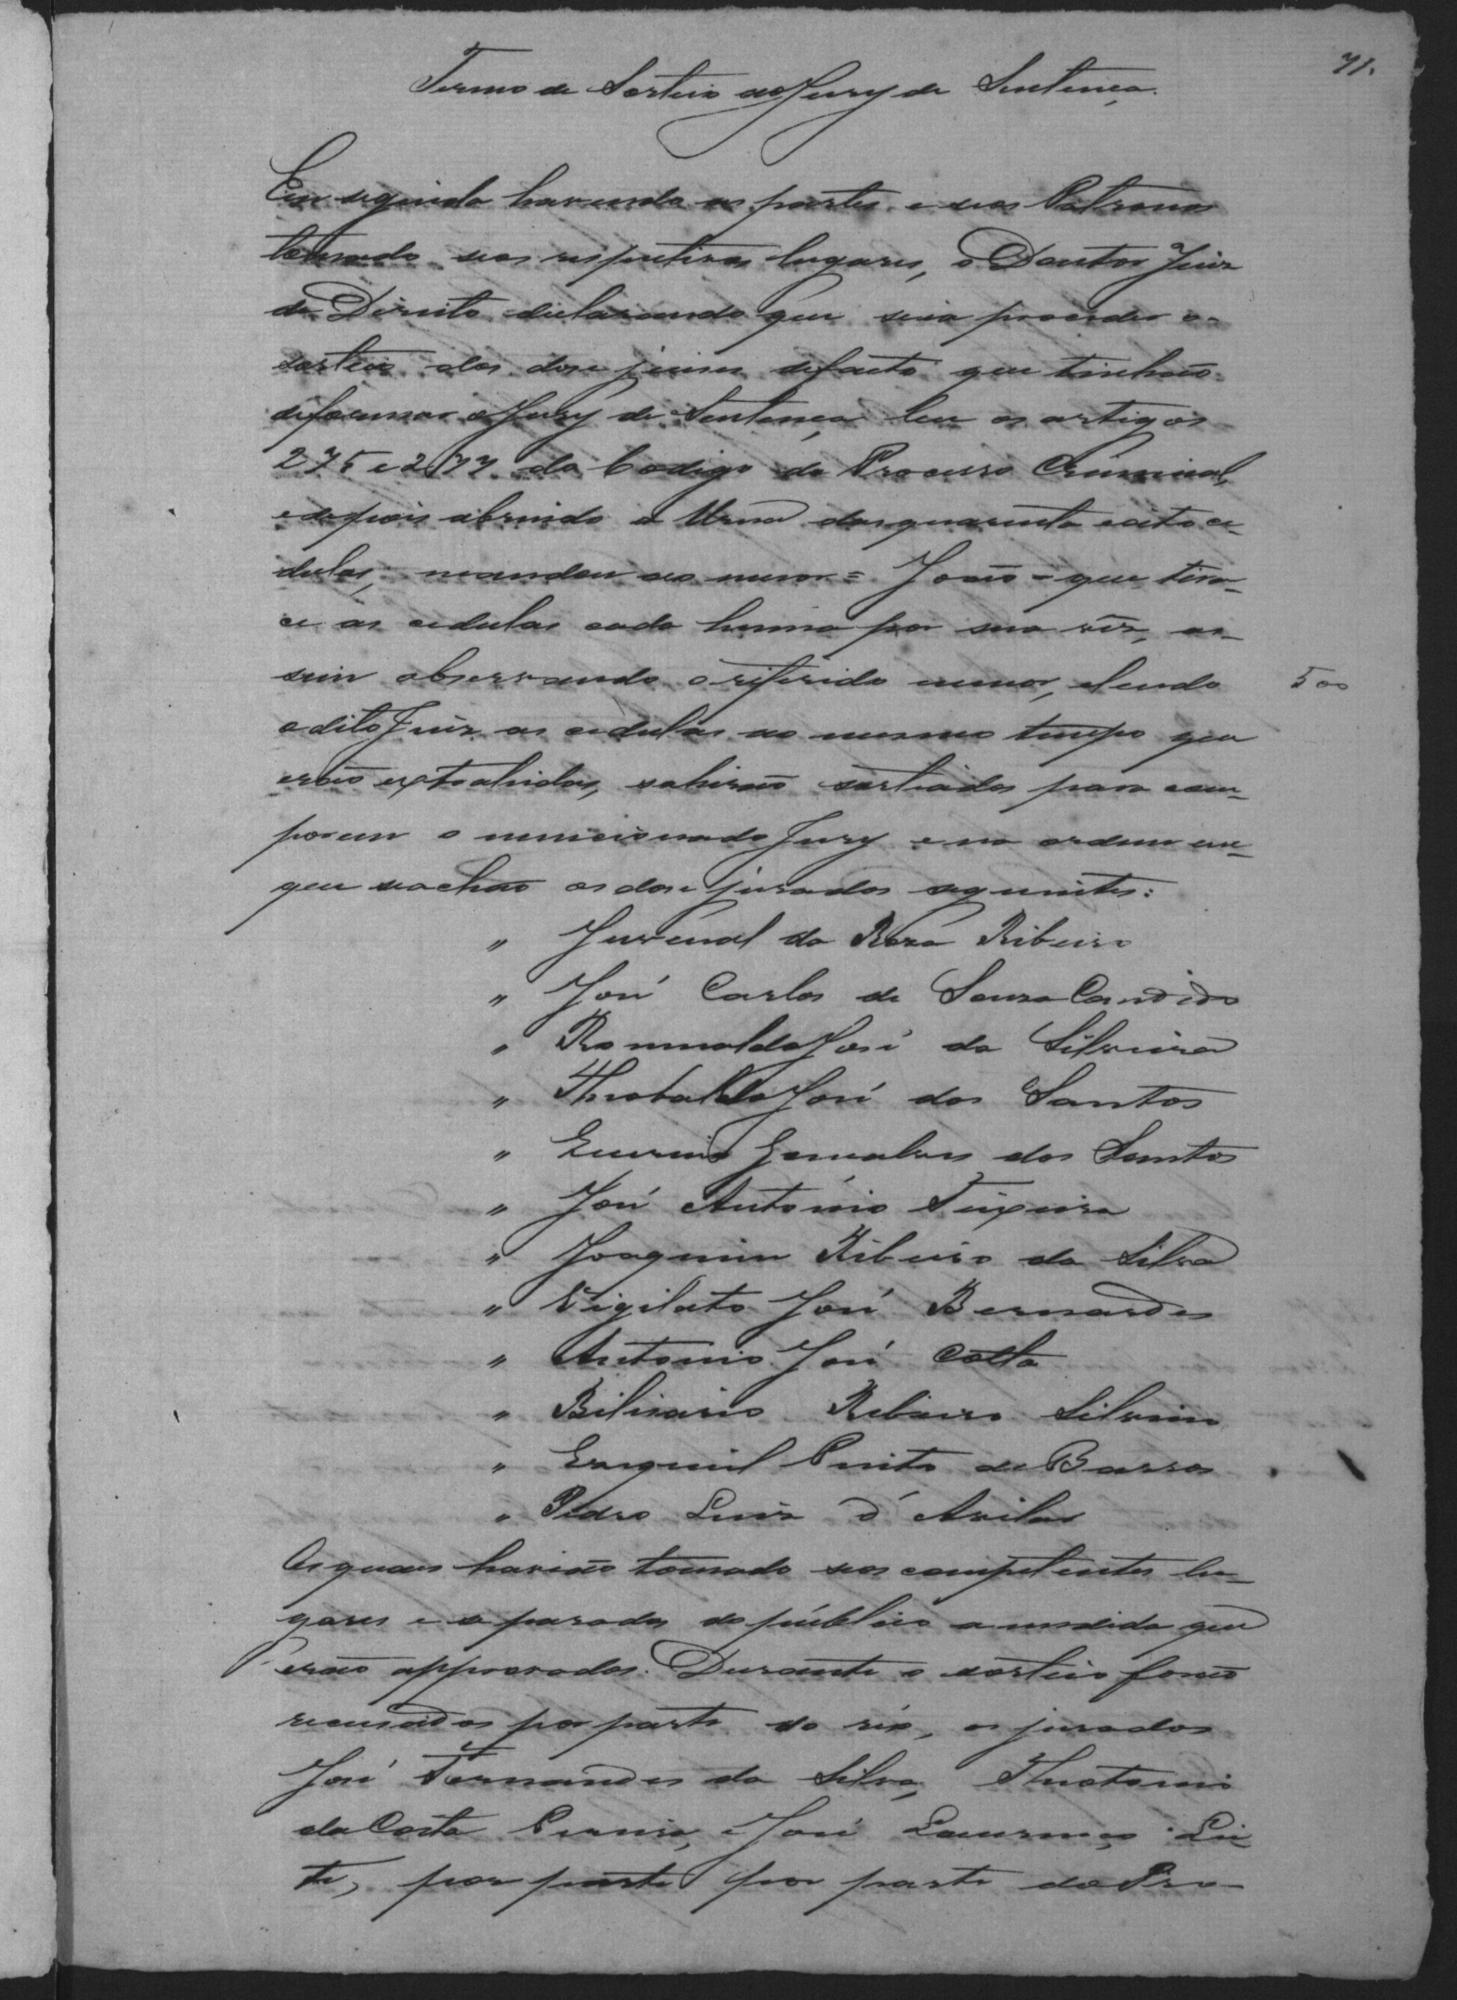 71.
Termo de Sorteio do Jury de Sentença.
Em seguida havendo as partes e seos Patronos
tomado seos respectivos lugares, o Doutor Juiz
de Direito declarando que seia proceder o
sorteio dos dose juises de facto que tinhão
de formar o Jury de Sentença, leu os artigos
275 e 277 do Codigo do Processo Criminal
e depois abrindo a Urna das quarenta e oito ce-
dulas, mandou ao menor = João = que tiras-
ce as cedulas cada huma por sua vêz, as-
sim observando o referido menor, e lendo
500
o dito Juiz as cedulas ao mesmo tempo que
erão extrahidas, sahirão sorteados para com-
porem o mencionado Jury e na ordem em
que se achão os dose jurados seguintes:
" Juvenal da Roza Ribeiro
" José Carlos de Souza Candido
" Romualdo José da Silveira
" Theobaldo José dos Santos
" Eunicio Gonsalves dos Santos
" José Antonio Teixeira
" Joaquim Ribeiro da Silva
" Vigilato José Bernardes
" Antonio José Costa
" Bilisario Ribeiro Silveira
" Ezequiel Pinto de Barros
" Pedro Luiz d'Avila
Os quaes havião tomado seos competentes lu-
gares e separados do publico a medida que
erão approvados. Durante o sorteio forão
recusados por parte do réo, os jurados
José Fernandes da Silva, Theotonio
da Costa Pereira, e José Lourenço Lei-
te, por parte por parte do Pro-